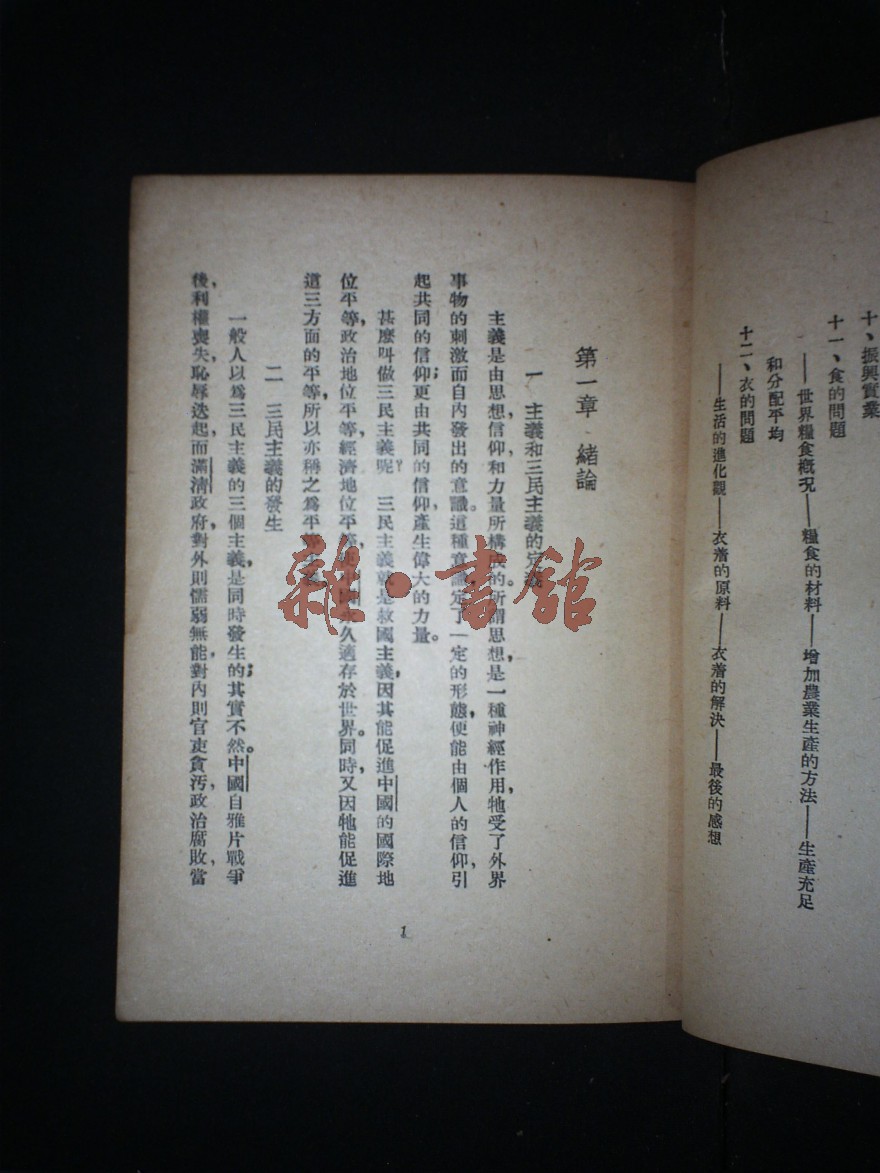 十、振興實業
十一、食的問題
——世界糧食概况——糧食的材料——增加農業生產的方法——生產充足
和分配平均
十二、衣的問題
——生活的進化觀——衣着的原料——衣着的解決——最後的感想
第一章 緒論
一 主義和三民主義的定義
主義是由思想,信仰和力量所構成的。所謂思想,是一種神經作用,牠受了外界
事物的刺激而自內發出的意識。這種意識定了一定的形態,便能由個人的信仰,引
起共同的信仰;更由共同的信仰,產生偉大的力量。
甚麽叫做三民主義呢? 三民主義就是救國主義,因其能促進中國的國際地
位平等,政治地位平等,經濟地位平等,使中國永久適存於世界。同時,又因牠能促進
這三方面的平等,所以亦稱之爲平等
二 三民主義的發生
一般人以爲三民主義的三個主義,是同時發生的;其實不然。中國自雅片戰爭
後,利權喪失,恥辱迭起,而滿清政府,對外則懦弱無能,對內則官吏貪汚,政治腐敗,當
1
雜·書館